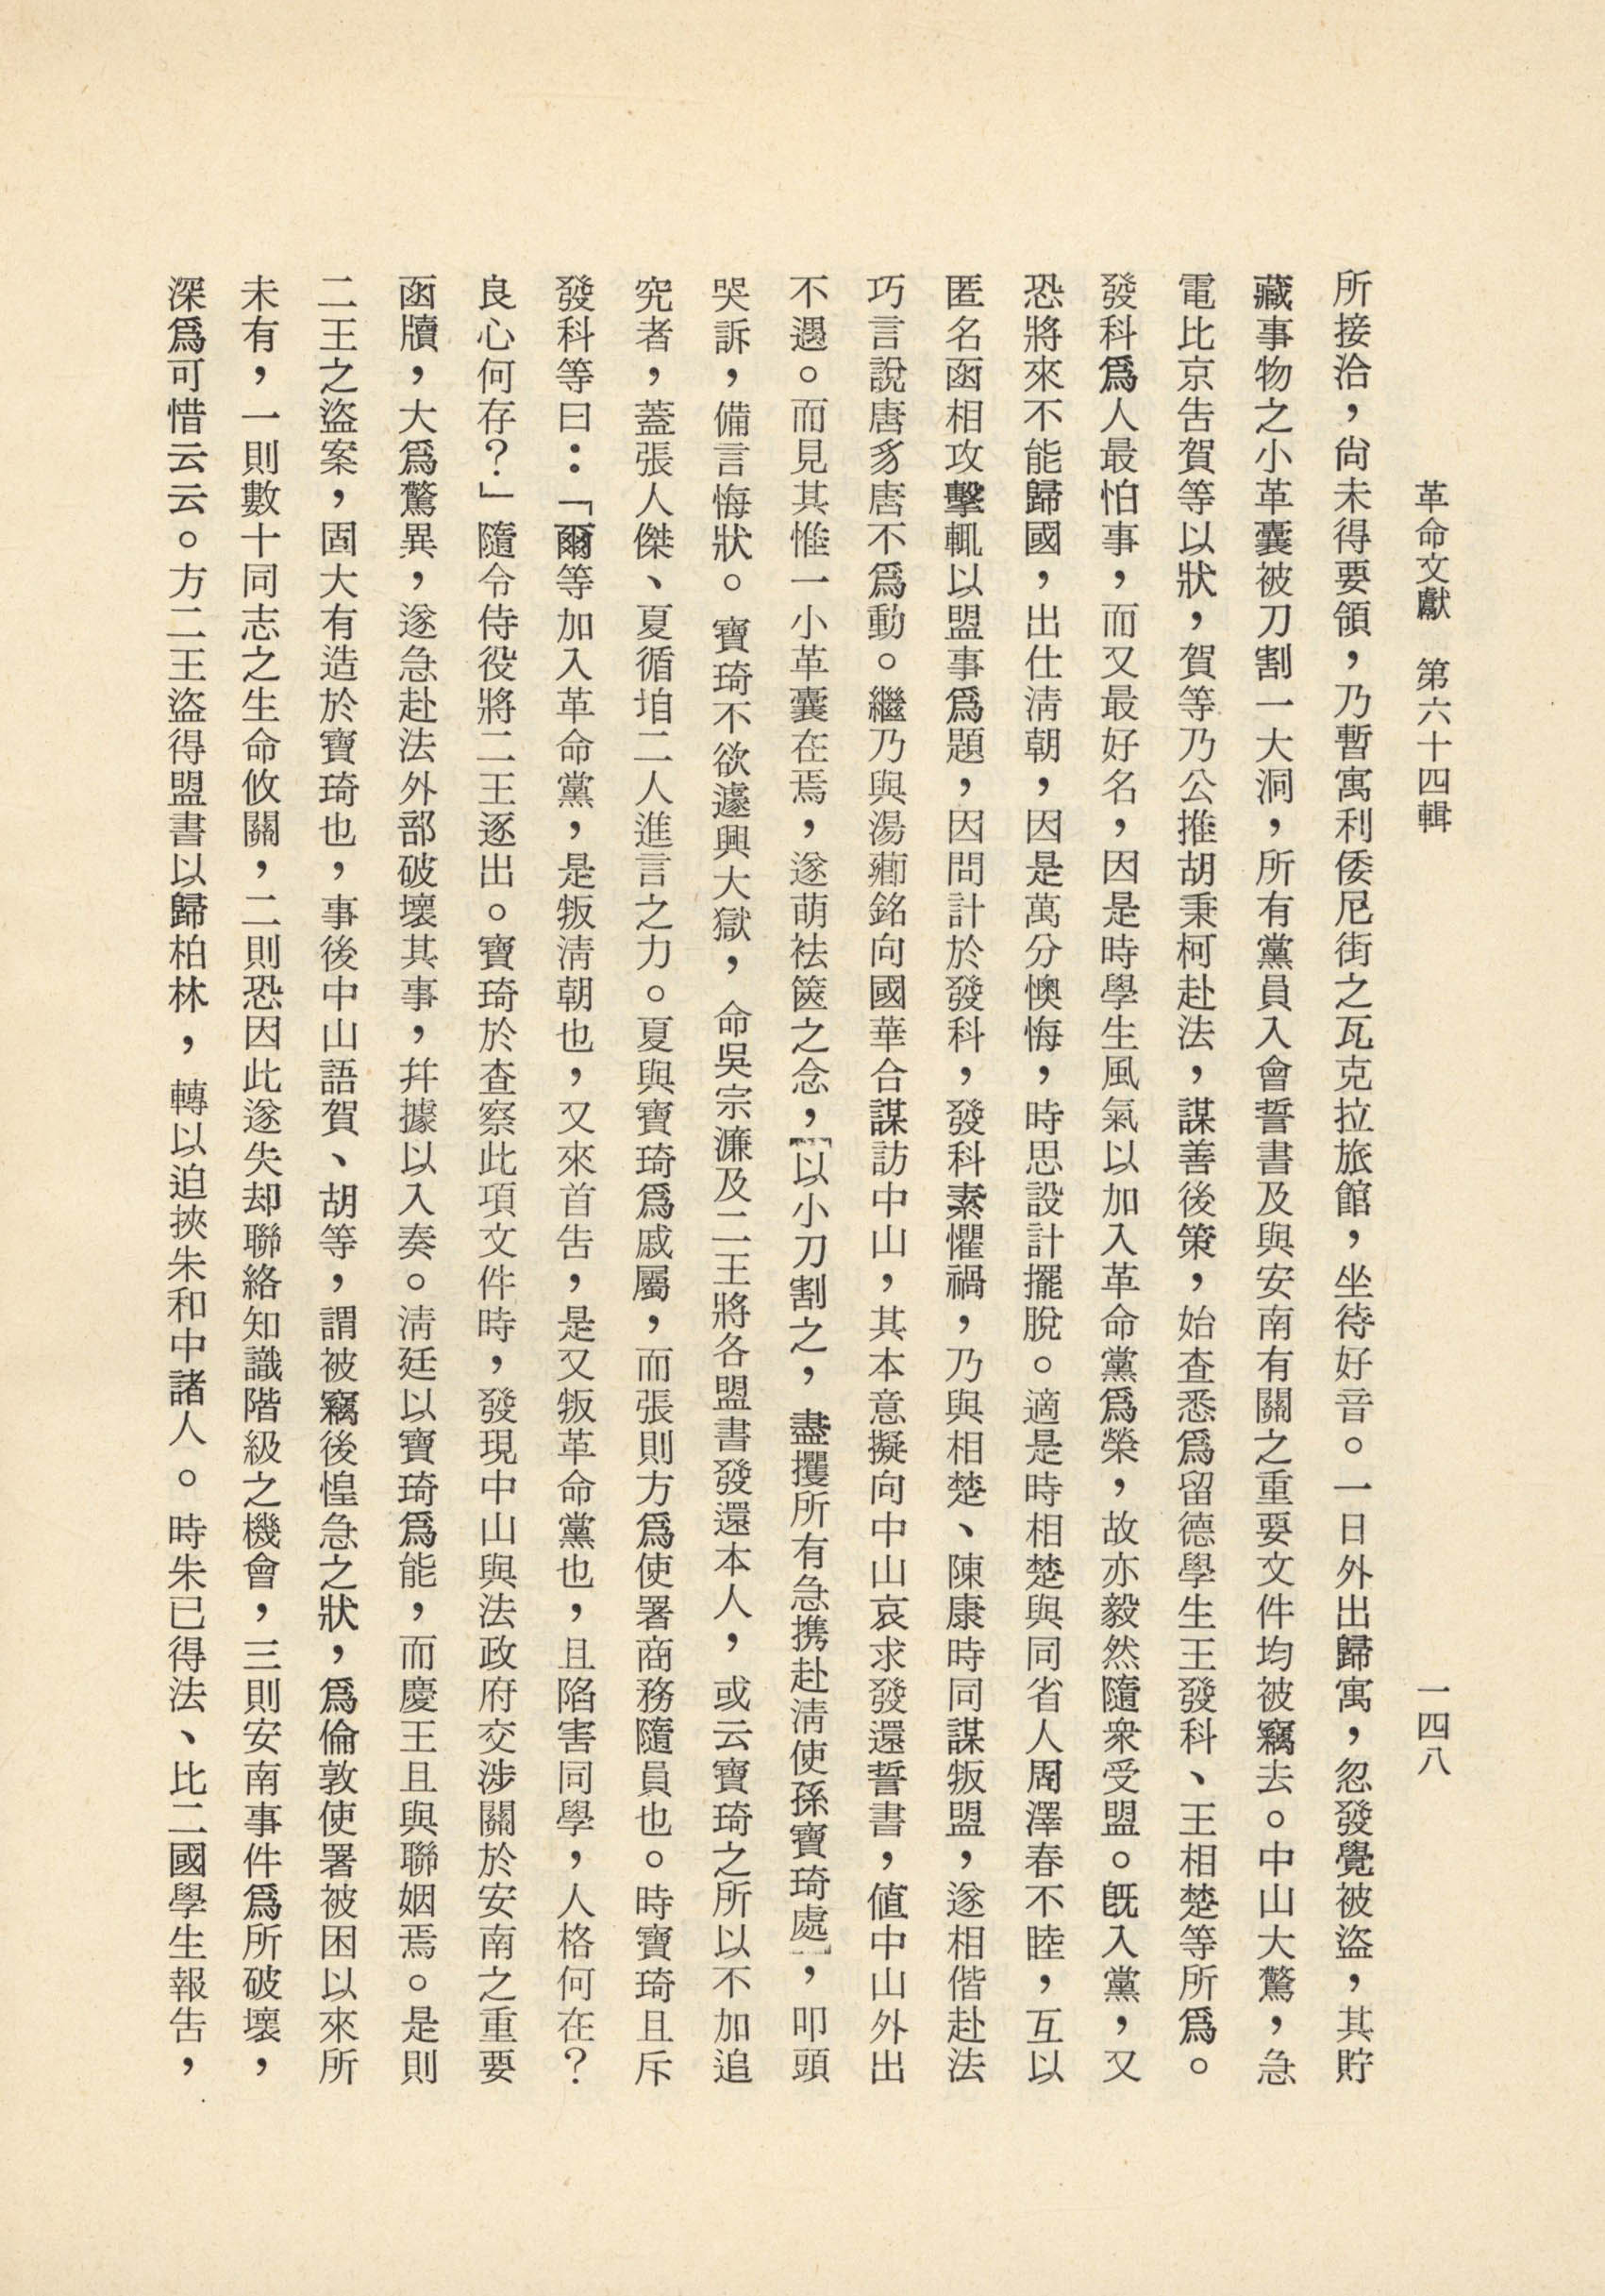 革命文獻　第六十四輯　一四八
所接洽，尙未得要領，乃暫寓利倭尼街之瓦克拉旅館，坐待好音。一日外出歸寓，忽發覺被盜，其貯
藏事物之小革囊被刀割一大洞，所有黨員入會誓書及與安南有關之重要文件均被竊去。中山大驚，急
電比京吿賀等以狀，賀等乃公推胡秉柯赴法，謀善後策，始查悉爲留德學生王發科、王相楚等所爲。
發科爲人最怕事，而又最好名，因是時學生風氣以加入革命黨爲榮，故亦毅然隨衆受盟。旣入黨，又
恐將來不能歸國，出仕淸朝，因是萬分懊悔，時思設計擺脫。適是時相楚與同省人周澤春不睦，互以
匿名函相攻擊輒以盟事爲題，因問計於發科，發科素懼禍，乃與相楚、陳康時同謀叛盟，遂相偕赴法
巧言說唐豸唐不爲動。繼乃與湯薌銘向國華合謀訪中山，其本意擬向中山哀求發還誓書，値中山外出
不遇。而見其惟一小革囊在焉，遂萌袪篋之念，〔以小刀割之，盡攫所有急携赴淸使孫寶琦處〕，叩頭
哭訴，備言悔狀。寶琦不欲遽興大獄，命吳宗濂及二王將各盟書發還本人，或云寶琦之所以不加追
究者，蓋張人傑、夏循垍二人進言之力。夏與寶琦爲戚屬，而張則方爲使署商務隨員也。時寶琦且斥
發科等曰：「爾等加入革命黨，是叛淸朝也，又來首吿，是又叛革命黨也，且陷害同學，人格何在？
良心何存？」隨令侍役將二王逐出。寶琦於查察此項文件時，發現中山與法政府交涉關於安南之重要
函牘，大爲驚異，遂急赴法外部破壞其事，幷據以入奏。淸廷以寶琦爲能，而慶王且與聯姻焉。是則
二王之盜案，固大有造於寶琦也，事後中山語賀、胡等，謂被竊後惶急之狀，爲倫敦使署被困以來所
未有，一則數十同志之生命攸關，二則恐因此遂失却聯絡知識階級之機會，三則安南事件爲所破壞，
深爲可惜云云。方二王盜得盟書以歸柏林，轉以迫挾朱和中諸人。時朱已得法、比二國學生報吿，